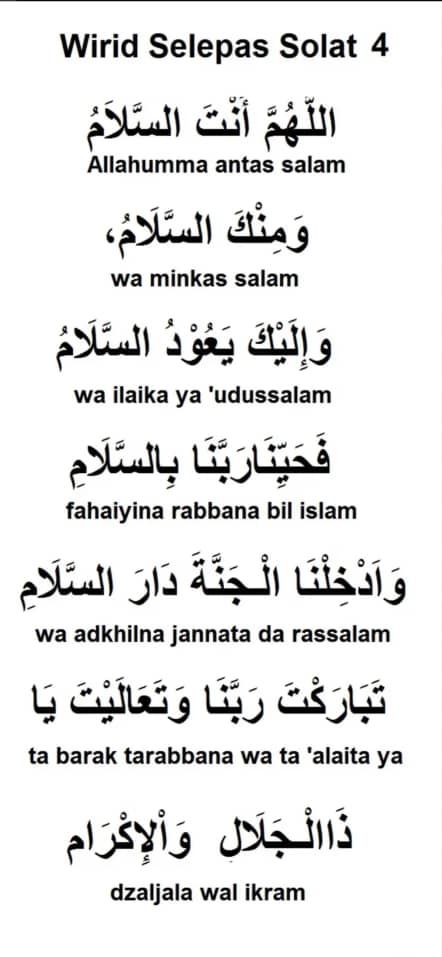 Wirid Selepas Solat 4
اللّٰهُمَّ أَنْتَ السَّلاَمُ
Allahumma antas salam
وَمِنْكَ السَّلَامُ،
wa minkas salam
وَإِلَيْكَ يَعُوْدُ السَّلَامُ
wa ilaika ya 'udussalam
فَحَيِّنَارَبَّنَا بِالسَّلَامِ
fahaiyina rabbana bil islam
وَاَدْخِلْنَا الْجَنَّةَ دَارَ السَّلَامِ
wa adkhilna jannata da rassalam
تَبَارَكْتَ رَبَّنَا وَتَعَالَيْتَ يَا
ta barak tarabbana wa ta 'alaita ya
ذَاالْجَلَالِ وَاْلإِكْرَام
dzaljala wal ikram